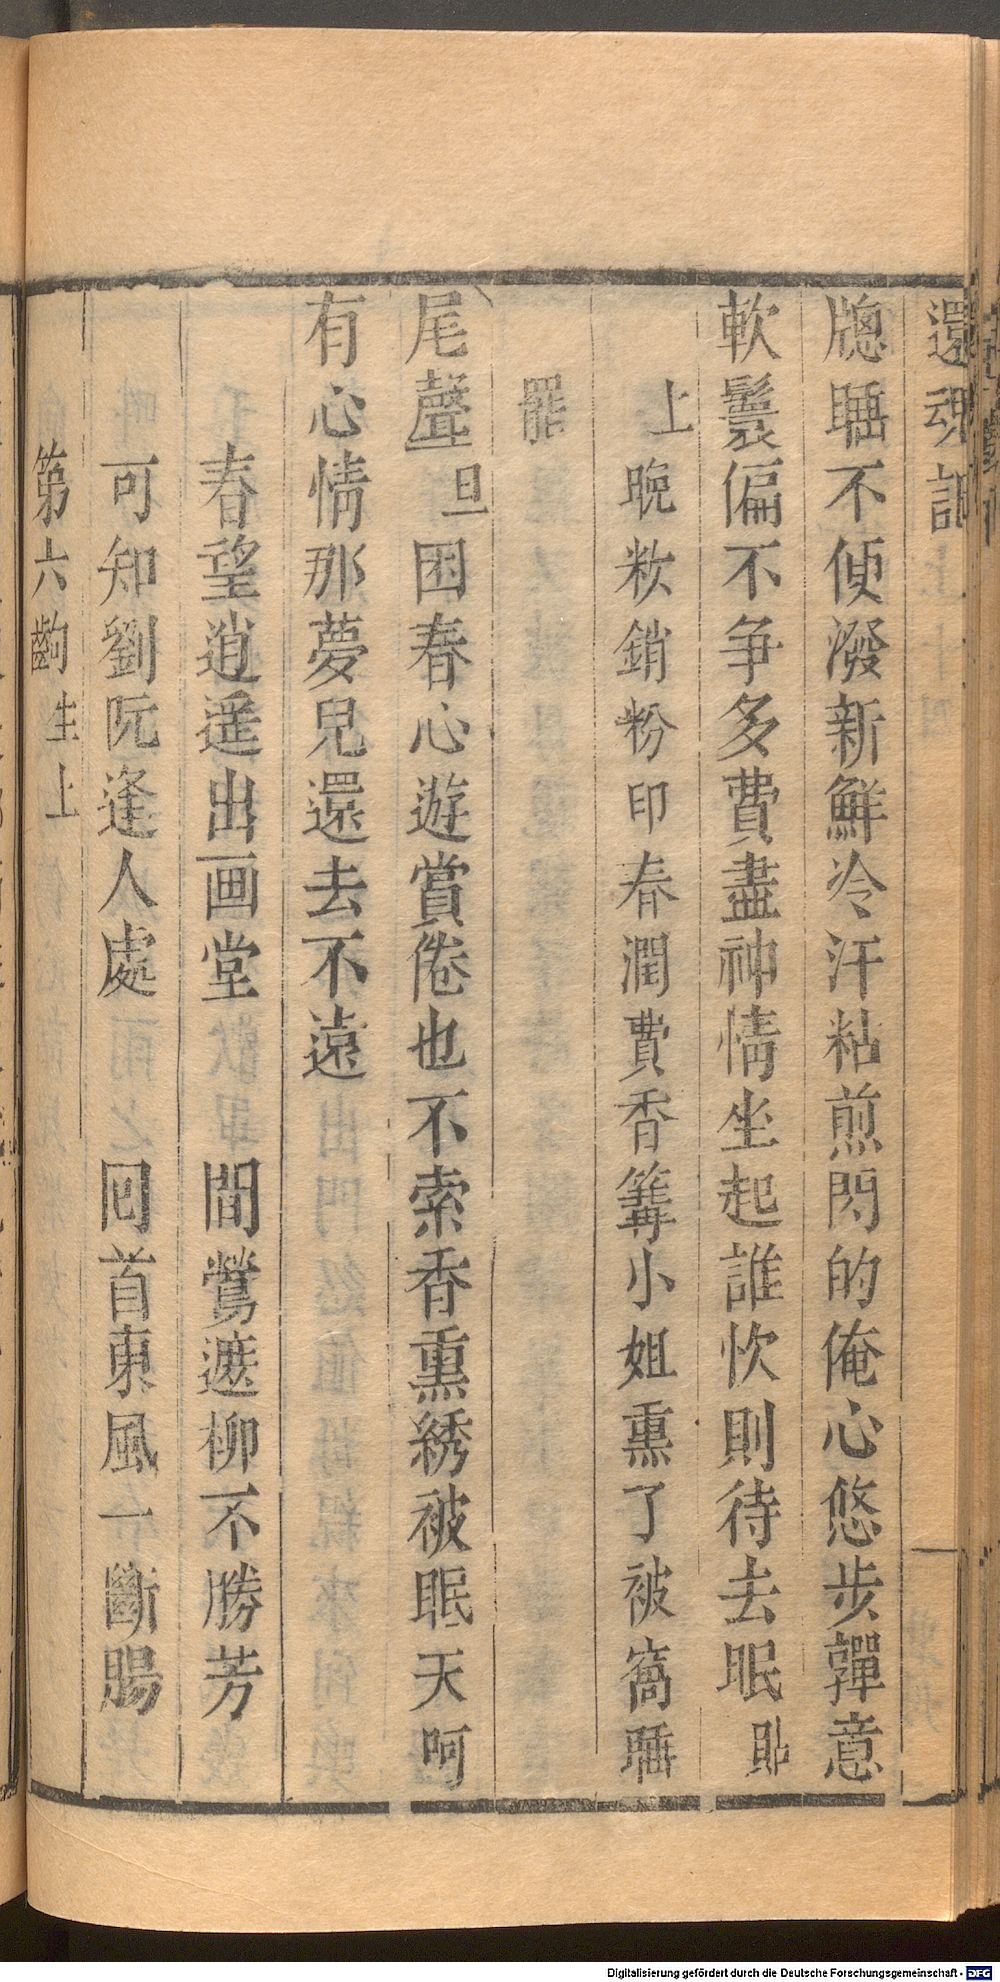 還魂記
牕睡不便潑新鮮冷汗粘煎閃的俺心悠步嚲意
軟鬟偏不争多費盡神情坐起誰忺則待去眠貼
上晚籹銷粉印春潤費香篝小姐熏了被窩睡
罷
尾聲旦困春心遊賞倦也不索香熏綉被眠天呵
有心情那夢兒還去不遠
春望逍遥出画堂 間鶯遮柳不勝芳
可知劉阮逢人處 囘首東風一斷腸
第六齣生上
Digitalisierung gefördert durch die Deutsche Forschungsgemeinschaft - DFG